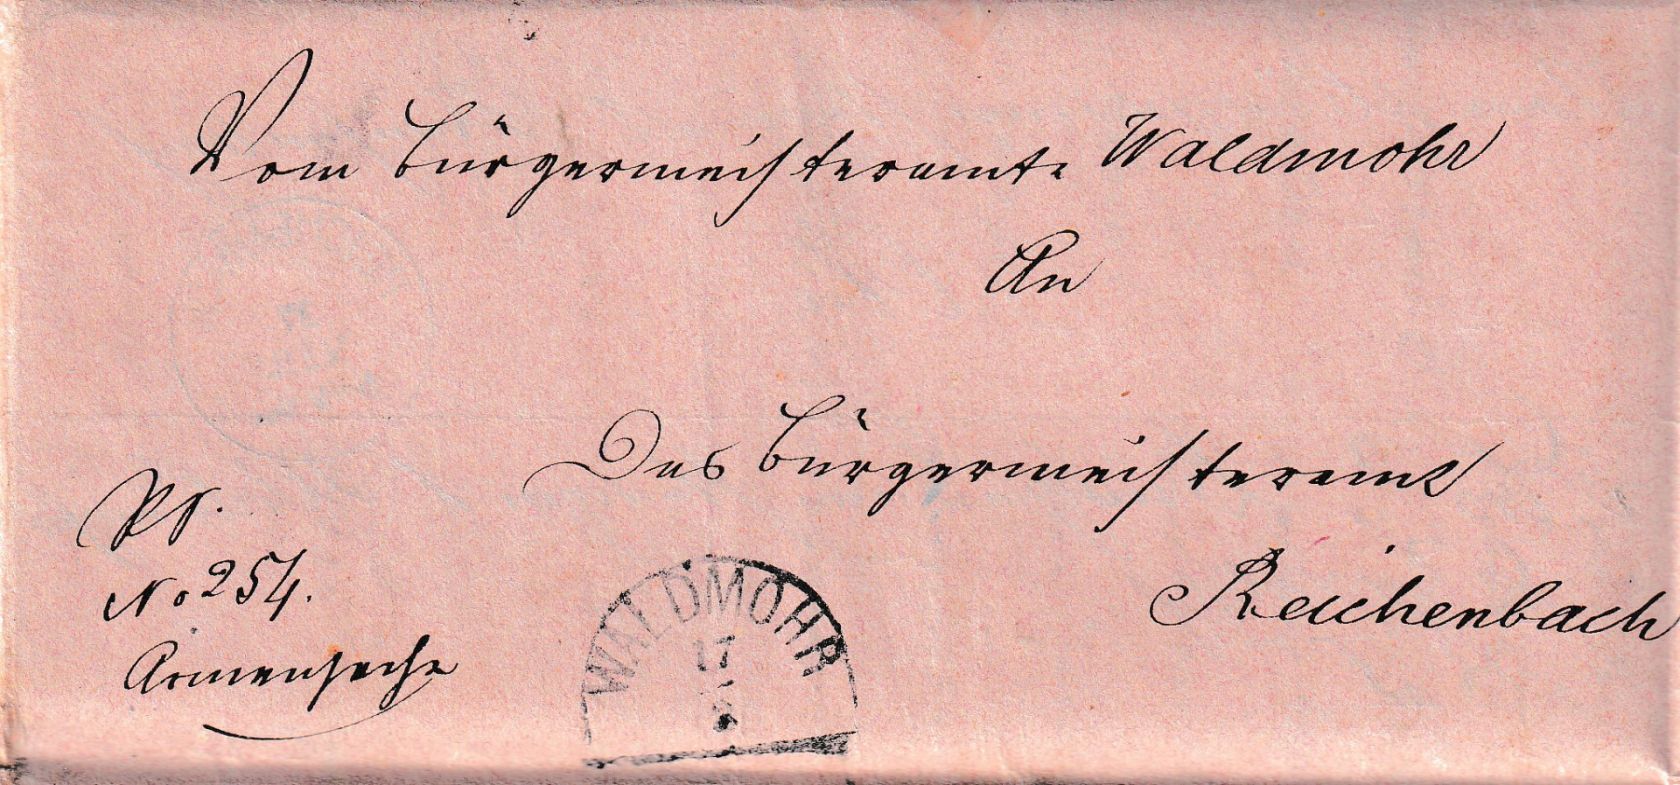 Vom Bürgermeisteramte Waldmohr
An
Das Bürgermeisteramt
Reichenbach
No 254.
Armensache
WALDMOHR
17